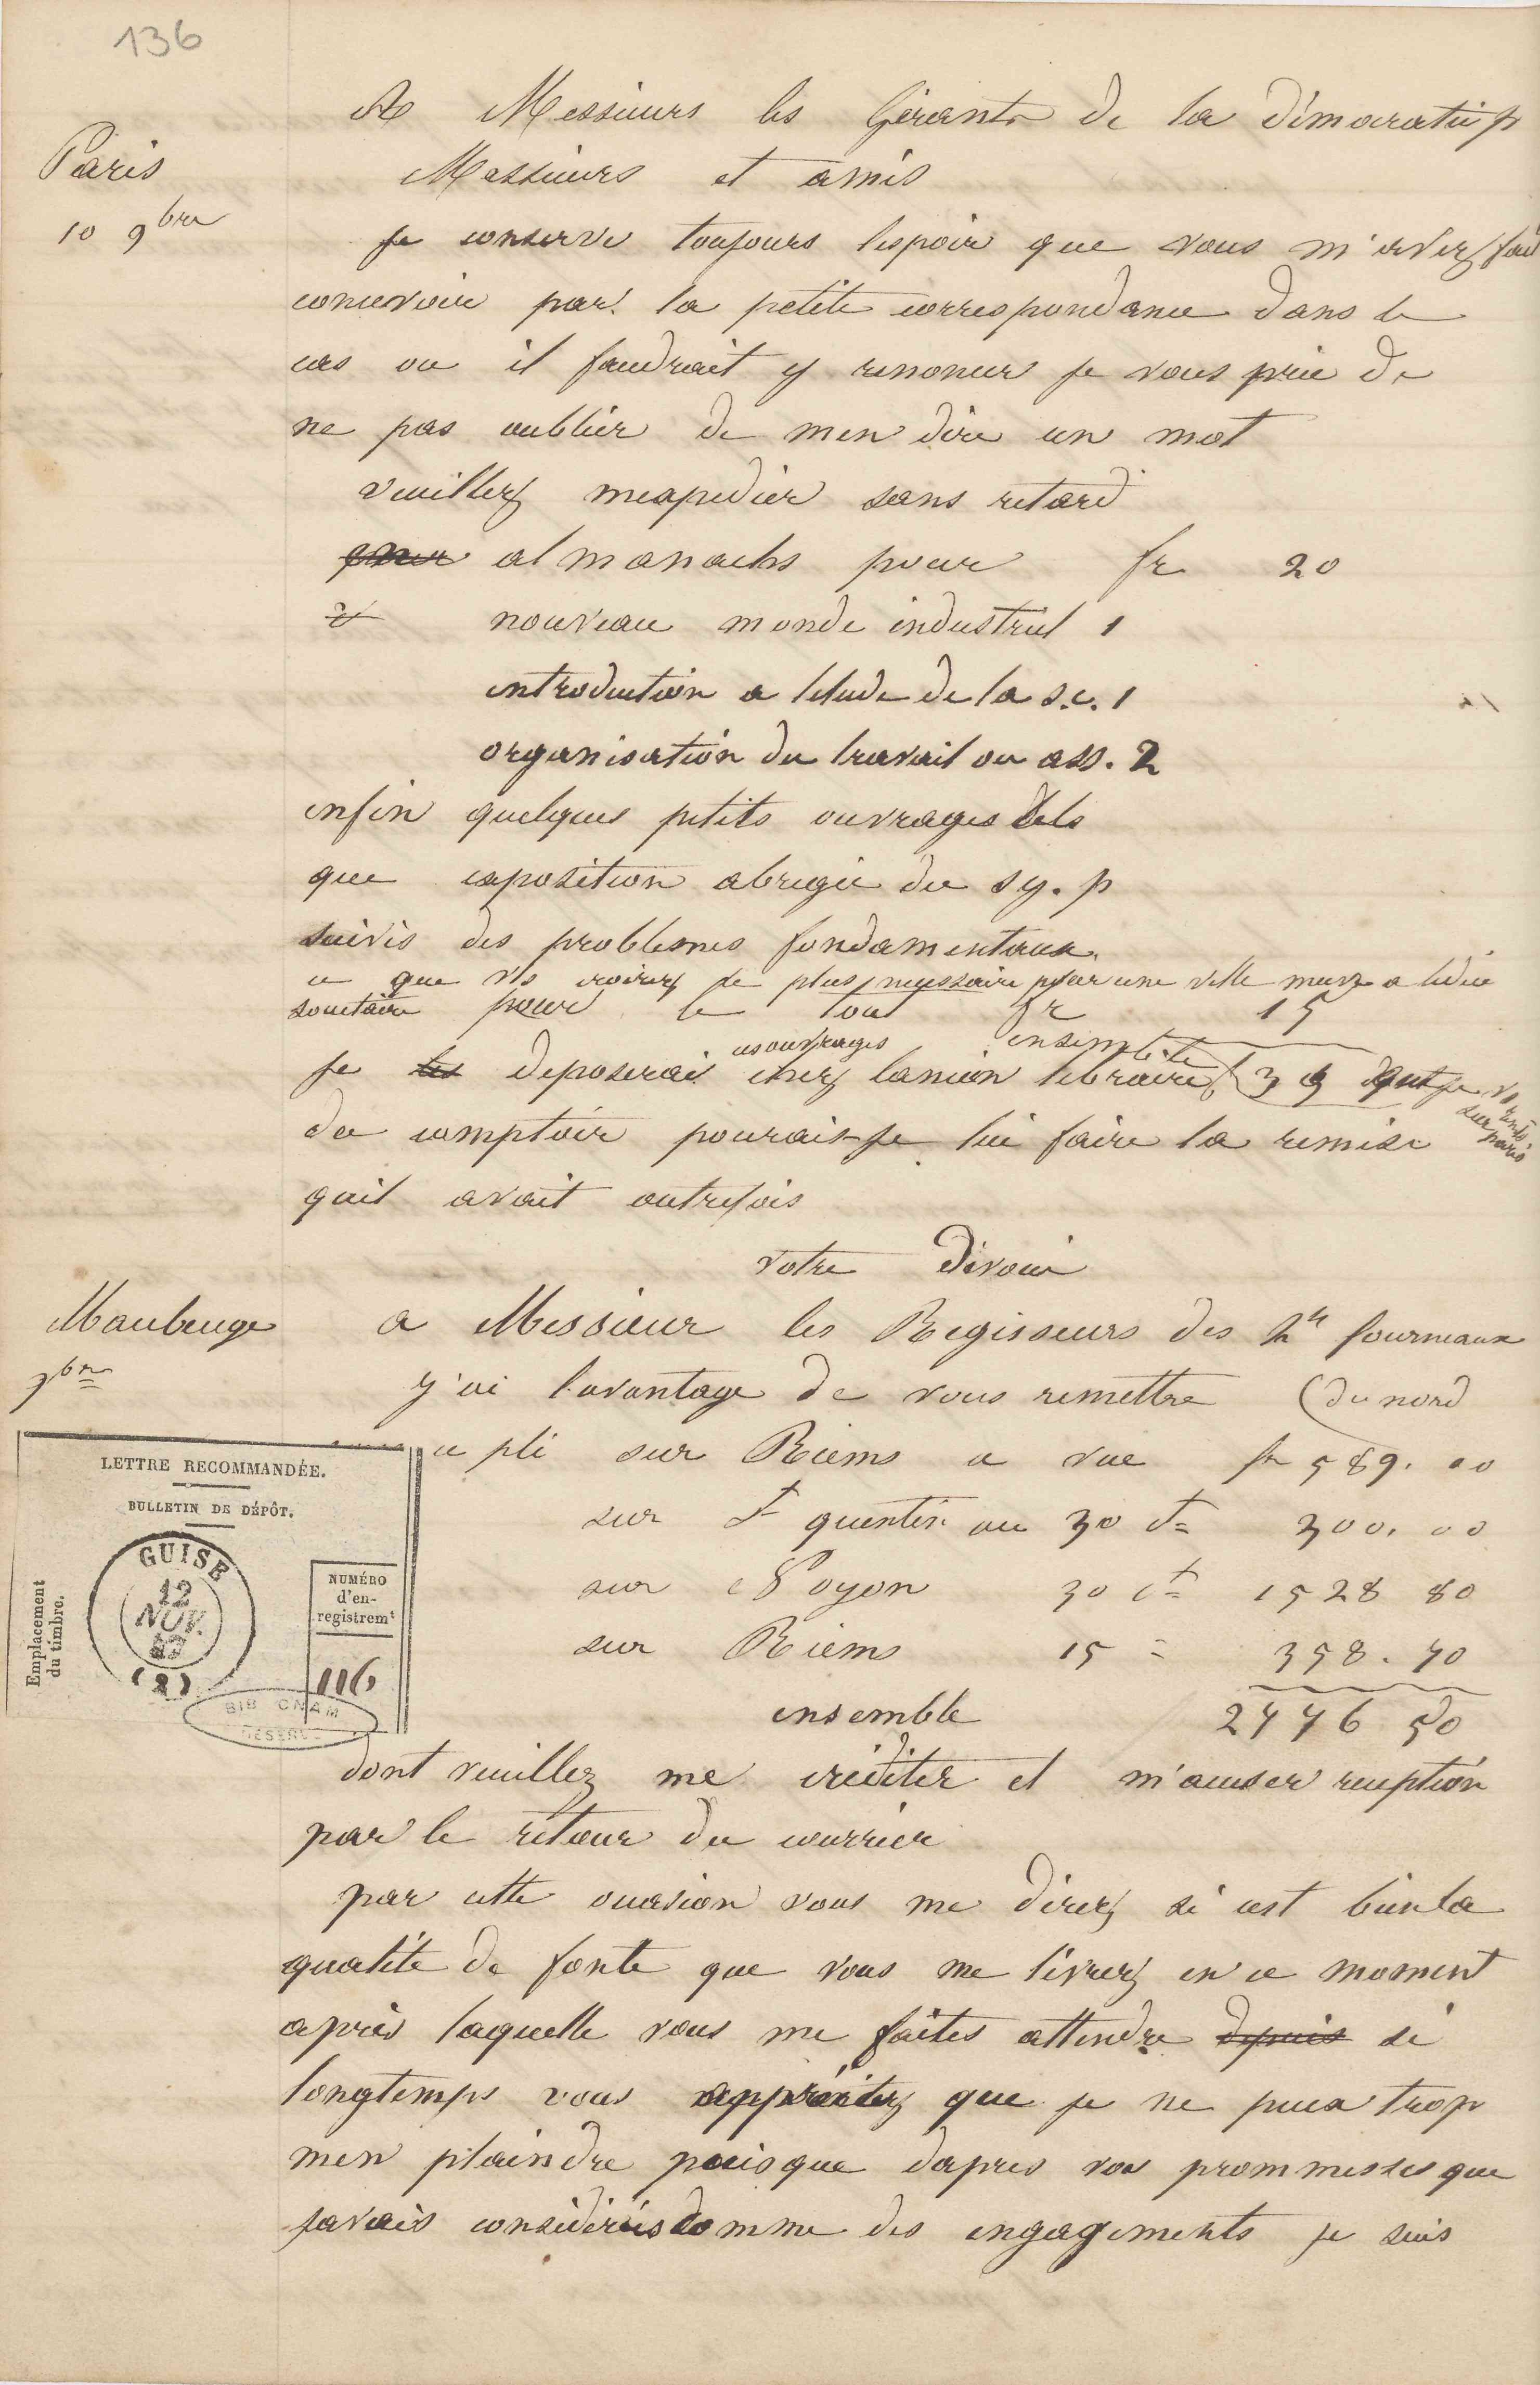 136
A Messieurs les Gérants de la démocratie p
Paris
10 9bre
Messieurs et amis
je conserve toujours lespoir que vous m'avez fait
concevoir par la petite correspondance dans le
cas ou il faudrait y renoncer je vous prie de
ne pas oublier de men dire un mot
veuillez mexpedier sans retard
almanachs pour fr 20
nouveau monde industriel 1
introduction a letude de la s.c. 1
organisation du travail ou ass. 2
enfin quelques petits ouvrages tels
que exposition abregée du sy. p
suivis des problemes fondamentaux.
ce que vs croirez le plus necessaire pour une ville muze a lidée
societaire pour le tout fr 15
ces ouvrages ensemble
je les deposerai chez lanion libraire 39 dont je vs
crédite sur paris
du comptoir pourais-je lui faire la remise
quil avait autrefois
votre dévoué
Maubeuge
9bre
a Messieur les Regisseurs des hts fourneaux
(du nord
j'ai lavantage de vous remettre
ce pli sur Riems a vue fr 589. 00
sur St quentin au 30 ct 300. 00
sur Noyon 30 ct 1528 80
sur Riems 15 = 358. 70
ensemble 2776 50
LETTRE RECOMMANDÉE.
BULLETIN DE DÉPÔT.
Emplacement
du timbre.
GUISE
12
NOV.
(2)
NUMÉRO
d'en-
registremt
116
BIB CNAM
RESERVE
dont veuillez me créditer et m'acuser reception
par le retour du courrier
par cette ocasion vous me direz si cest bien la
qualité de fonte que vous me livrez en ce moment
après laquelle vous me faites attendre depuis si
longtemps vous appréciez que je ne puex trop
men plaindre puisque dapres vos prommesses que
javais considérés comme des engagements je suis